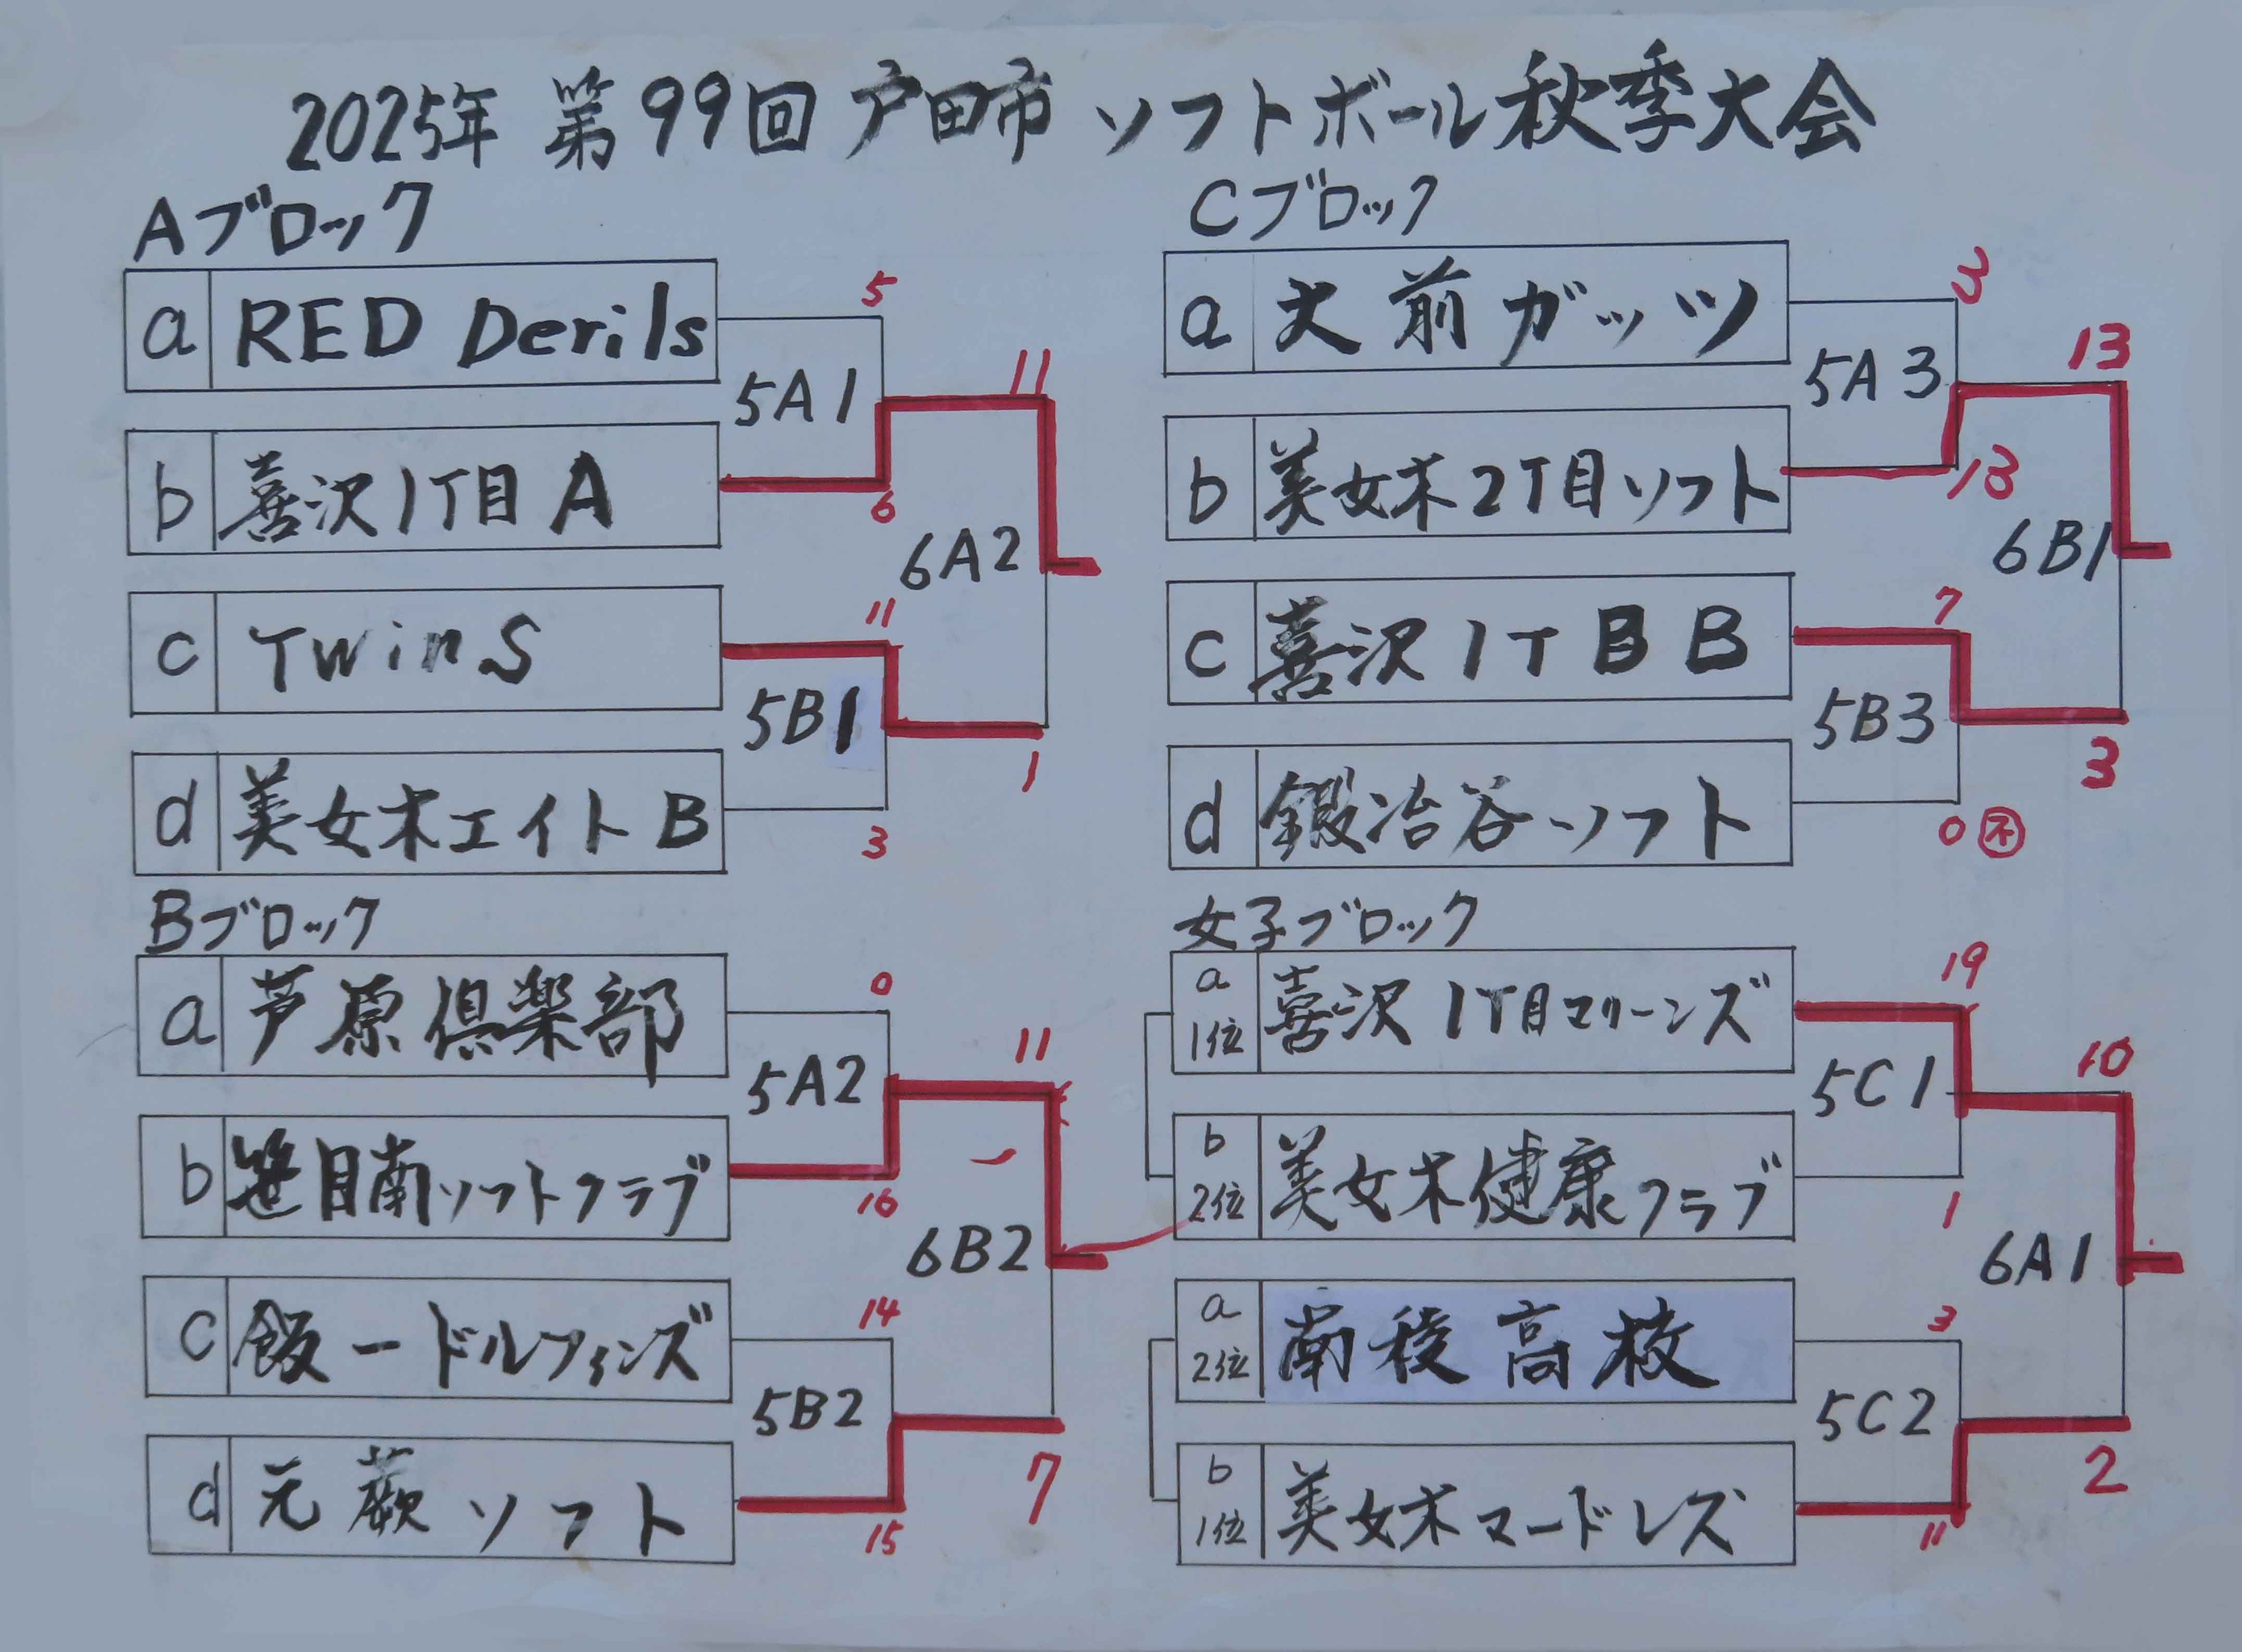 2025年 第99回 戸田市 ソフトボール秋季大会
Aブロック
a RED Derils 5
5A1 11
b 喜沢1丁目 A 6
6A2
c Twins 11
5B1 1
d 美女木エイトB 3
Bブロック
a 芦原倶楽部 0
5A2 11
b 笹目南ソフトクラブ 16
6B2
c 飯一ドルフィンズ 14
5B2 7
d 元蕨ソフト 15
Cブロック
a 大前ガッツ 3
5A3 13
b 美女木2丁目ソフト 13
6B1
c 喜沢1丁目 B 7
5B3 3
d 鍛冶谷ソフト 0 不
女子ブロック
a 1位 喜沢1丁目マリーンズ 19
5C1 10
b 2位 美女木健康クラブ 1
6A1
a 2位 南稜高校 3
5C2 2
b 1位 美女木マードレズ 11